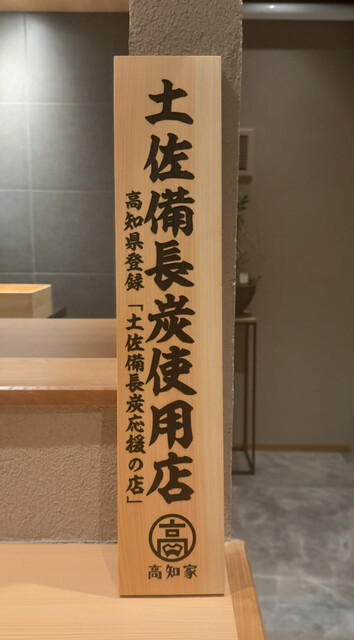 土佐備長炭使用店
高知県登録「土佐備長炭応援の店」
高
高知家